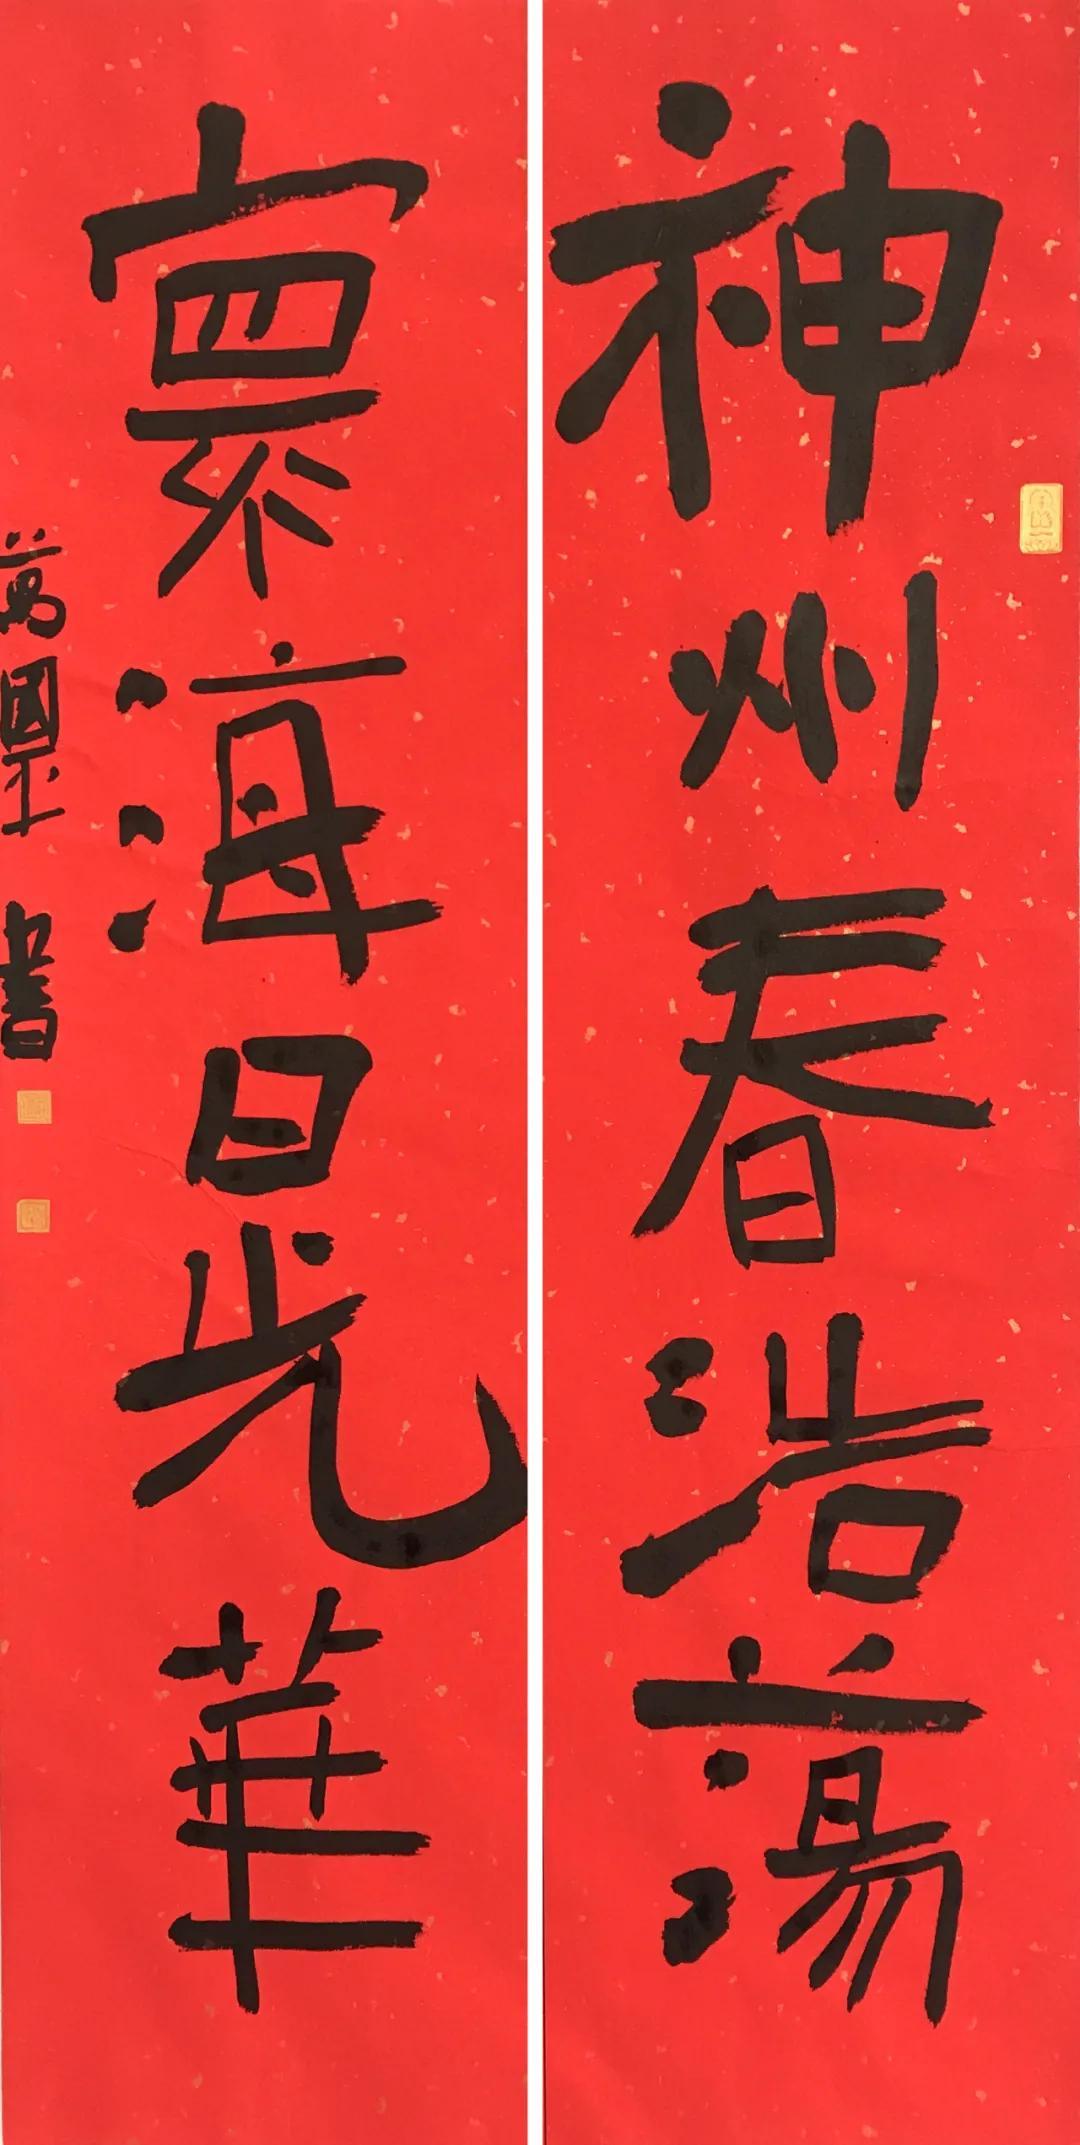 神州春浩蕩
寰海日光華
萬國 書